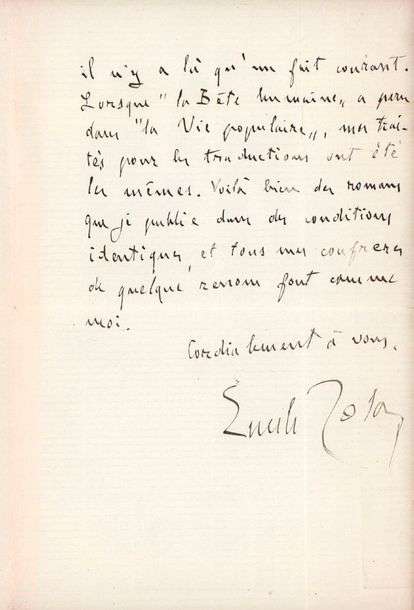 il n'y a là qu'un fait courant.
Lorsque "la Bête humaine" a paru
dans "la Vie populaire", mes trai-
tés pour les traductions ont été
les mêmes. Voilà bien des romans
que je publie dans des conditions
identiques, et tous mes confrères
de quelque renom font comme
moi.
Cordialement à vous.
Émile Zola